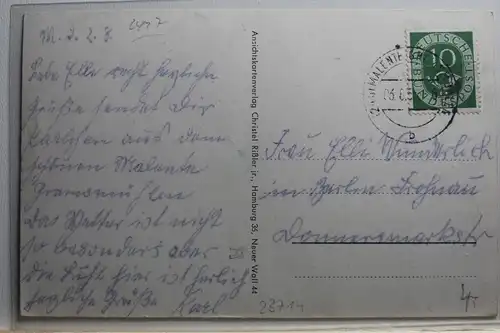 M. d. 2. 8.
2417
Liebe Elli recht herzliche
Grüße sendet Dir
aus dem
schönen Malente
Gremsmühlen
das Wetter ist nicht
so besonders aber
die Luft hier ist herlich
herzliche Grüße Karl
Ansichtskartenverlag Christel Rißler jr., Hamburg 36, Neuer Wall 44
MALENTE
b
DEUTSCHE POST
10
Frau Elli Wunderlich
in Berlin Frohnau
Donnersmarckstr
28714
4,-